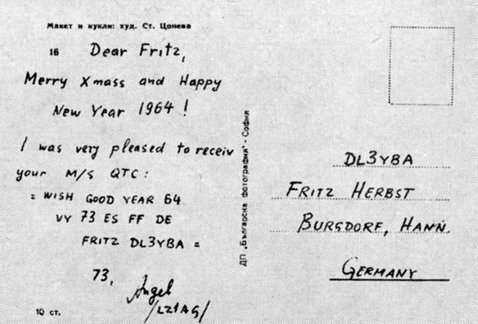 Макет и кукли: худ. Ст. Цонева
16
Dear Fritz,
Merry Xmass and Happy
New Year 1964!
I was very pleased to receiv
your M/S QTC:
= WISH GOOD YEAR 64
VY 73 ES FF DE
FRITZ DL3YBA =
73,
Angel
/LZ1AG/
10 ст.
ДП „Българска фотография“ - София
DL3YBA
FRITZ HERBST
BURGDORF, HANN.
GERMANY